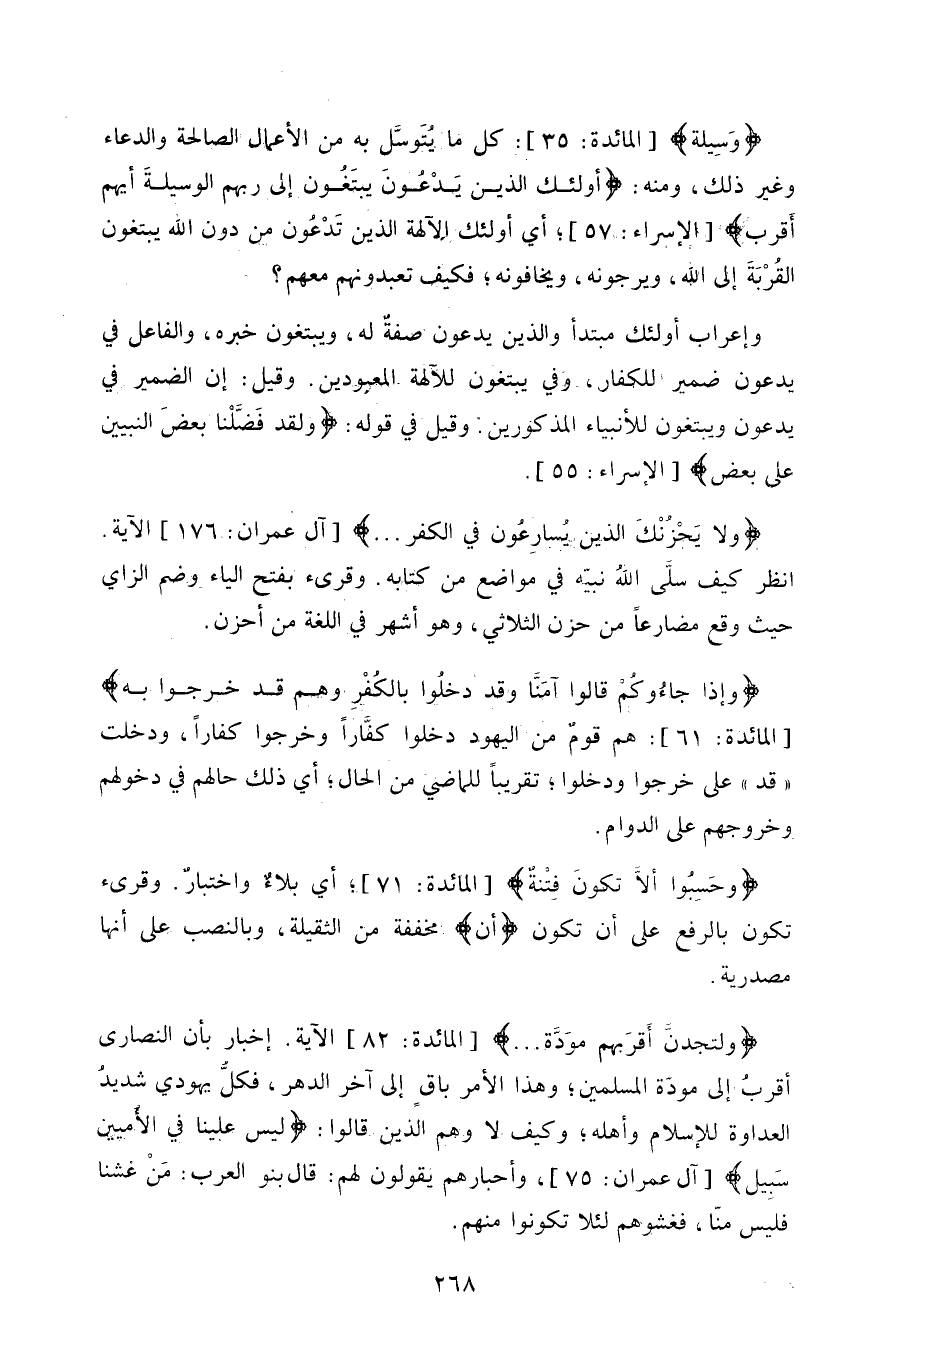 ﴿وَسِيلة﴾ [المائدة: ٣٥]: كل ما يُتَوسَّل به من الأعمال الصالحة والدعاء
وغير ذلك، ومنه: ﴿أولئـك الذيـن يَـدْعُـونَ يبتَغُـون إلى ربهم الوسيلـةَ أيهم
أَقرب﴾ [الإسراء: ٥٧]؛ أي أولئك الآلهة الذين تَدْعُون من دون الله يبتغون
القُرْبَةَ إلى الله، ويرجونه، ويخافونه؛ فكيف تعبدونهم معهم؟
وإعراب أولئك مبتدأ والذين يدعون صفةٌ له، ويبتغون خبره، والفاعل في
يدعون ضمير للكفار، وفي يبتغون للآلهة المعبودين. وقيل: إن الضمير في
يدعون ويبتغون للأنبياء المذكورين. وقيل في قوله: ﴿ولقد فَضَّلْنا بعضَ النبيين
على بعض﴾ [الإسراء: ٥٥].
﴿ولا يَحْزُنْكَ الذين يُسارِعُون في الكفر...﴾ [آل عمران: ١٧٦] الآية.
انظر كيف سلَّى اللهُ نبيّه في مواضع من كتابه. وقرىء بفتح الياء وضم الزاي
حيث وقع مضارعاً من حزن الثلاثي، وهو أشهر في اللغة من أحزن.
﴿وإذا جاءُوكُمْ قالوا آمَنَّا وقد دخلُوا بالكُفْرِ وهـم قـد خـرجـوا بـه﴾
[المائدة: ٦١]: هم قومٌ من اليهود دخلوا كفَّاراً وخرجوا كفاراً، ودخلت
«قد» على خرجوا ودخلوا؛ تقريباً للماضي من الحال؛ أي ذلك حالهم في دخولهم
وخروجهم على الدوام.
﴿وحَسِبُوا ألاَّ تكونَ فِتْنةٌ﴾ [المائدة: ٧١]؛ أي بلاءٌ واختبارٌ. وقرىء
تكون بالرفع على أن تكون ﴿أن﴾ مخففة من الثقيلة، وبالنصب على أنها
مصدرية.
﴿ولتجدنَّ أَقرَبهم مودَّة...﴾ [المائدة: ٨٢] الآية. إخبار بأن النصارى
أقربُ إلى مودَة المسلمين؛ وهذا الأمر باقٍ إلى آخر الدهر، فكلُّ يهودي شديدُ
العداوة للإسلام وأهله؛ وكيف لا وهم الذين قالوا: ﴿ليس علينا في الأُميين
سَبِيل﴾ [آل عمران: ٧٥]، وأحبارهم يقولون لهم: قال بنو العرب: مَنْ غشنا
فليس منّا، فغشوهم لئلا تكونوا منهم.
٢٦٨